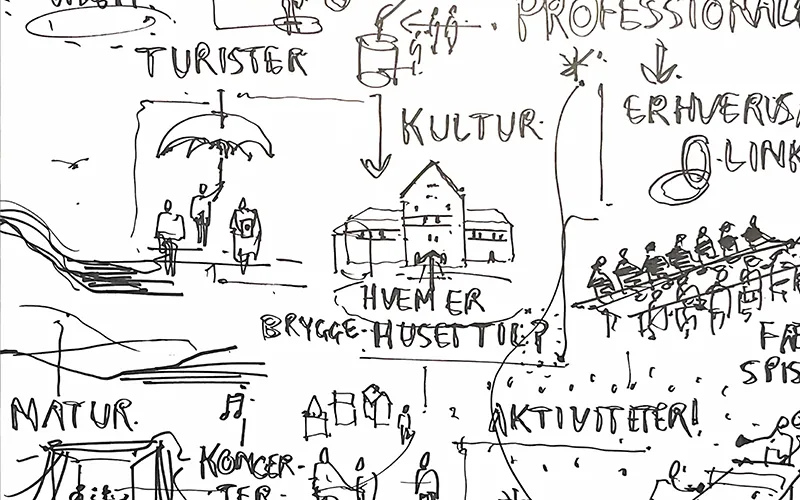 PROFESSIONAL
TURISTER
KULTUR
ERHVERVS
LINK
HVEM ER
BRYGGE-HUSET TIL?
FÆ
SPIS
NATUR
AKTIVITETER!
KONCER-
TER-